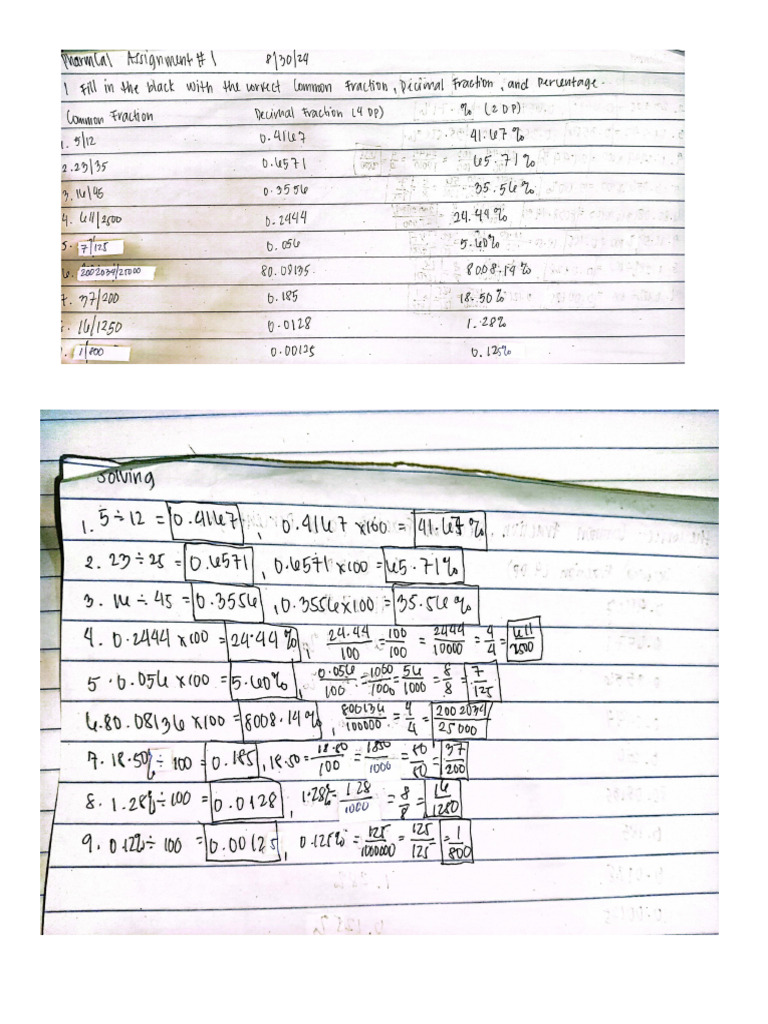 PharmCal Assignment # 1 8/30/24
1 Fill in the black with the correct Common Fraction, Decimal Fraction, and Percentage.
Common Fraction Decimal Fraction (4 DP) % (2 DP)
1. 5/12 0.4167 41.67%
2. 23/35 0.6571 65.71%
3. 16/45 0.3556 35.56%
4. 611/2500 0.2444 24.44%
5. 7/125 0.056 5.60%
6. 2002034/25000 80.08135 8008.14%
7. 37/200 0.185 18.50%
16/1250 0.0128 1.28%
1/800 0.00125 0.125%
Solving
1. 5÷12 = 0.4167, 0.4167 x100 = 41.67%
2. 23÷25 = 0.6571, 0.6571 x100 = 65.71%
3. 16÷45 = 0.3556, 0.3556 x100 = 35.56%
4. 0.2444 x100 = 24.44%, 24.44/100 = 100/100 = 2444/10000 = 4/4 = 611/2500
5. 0.056 x100 = 5.60%, 0.056/100 = 1000/1000 = 56/1000 = 8/8 = 7/125
6. 80.08136 x100 = 8008.14%, 800136/100000 = 4/4 = 2002034/25000
7. 18.50% ÷ 100 = 0.185, 18.50 = 18.80/100 = 1850/1000 = 50/50 = 37/200
8. 1.28% ÷ 100 = 0.0128, 1.28% = 128/1000 = 8/8 = 16/1250
9. 0.12% ÷ 100 = 0.00125, 0.125% = 125/100000 = 125/125 = 1/800